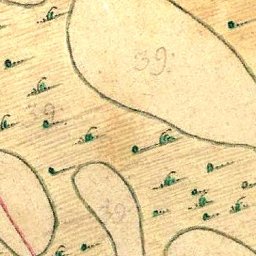 39.
39.
39.